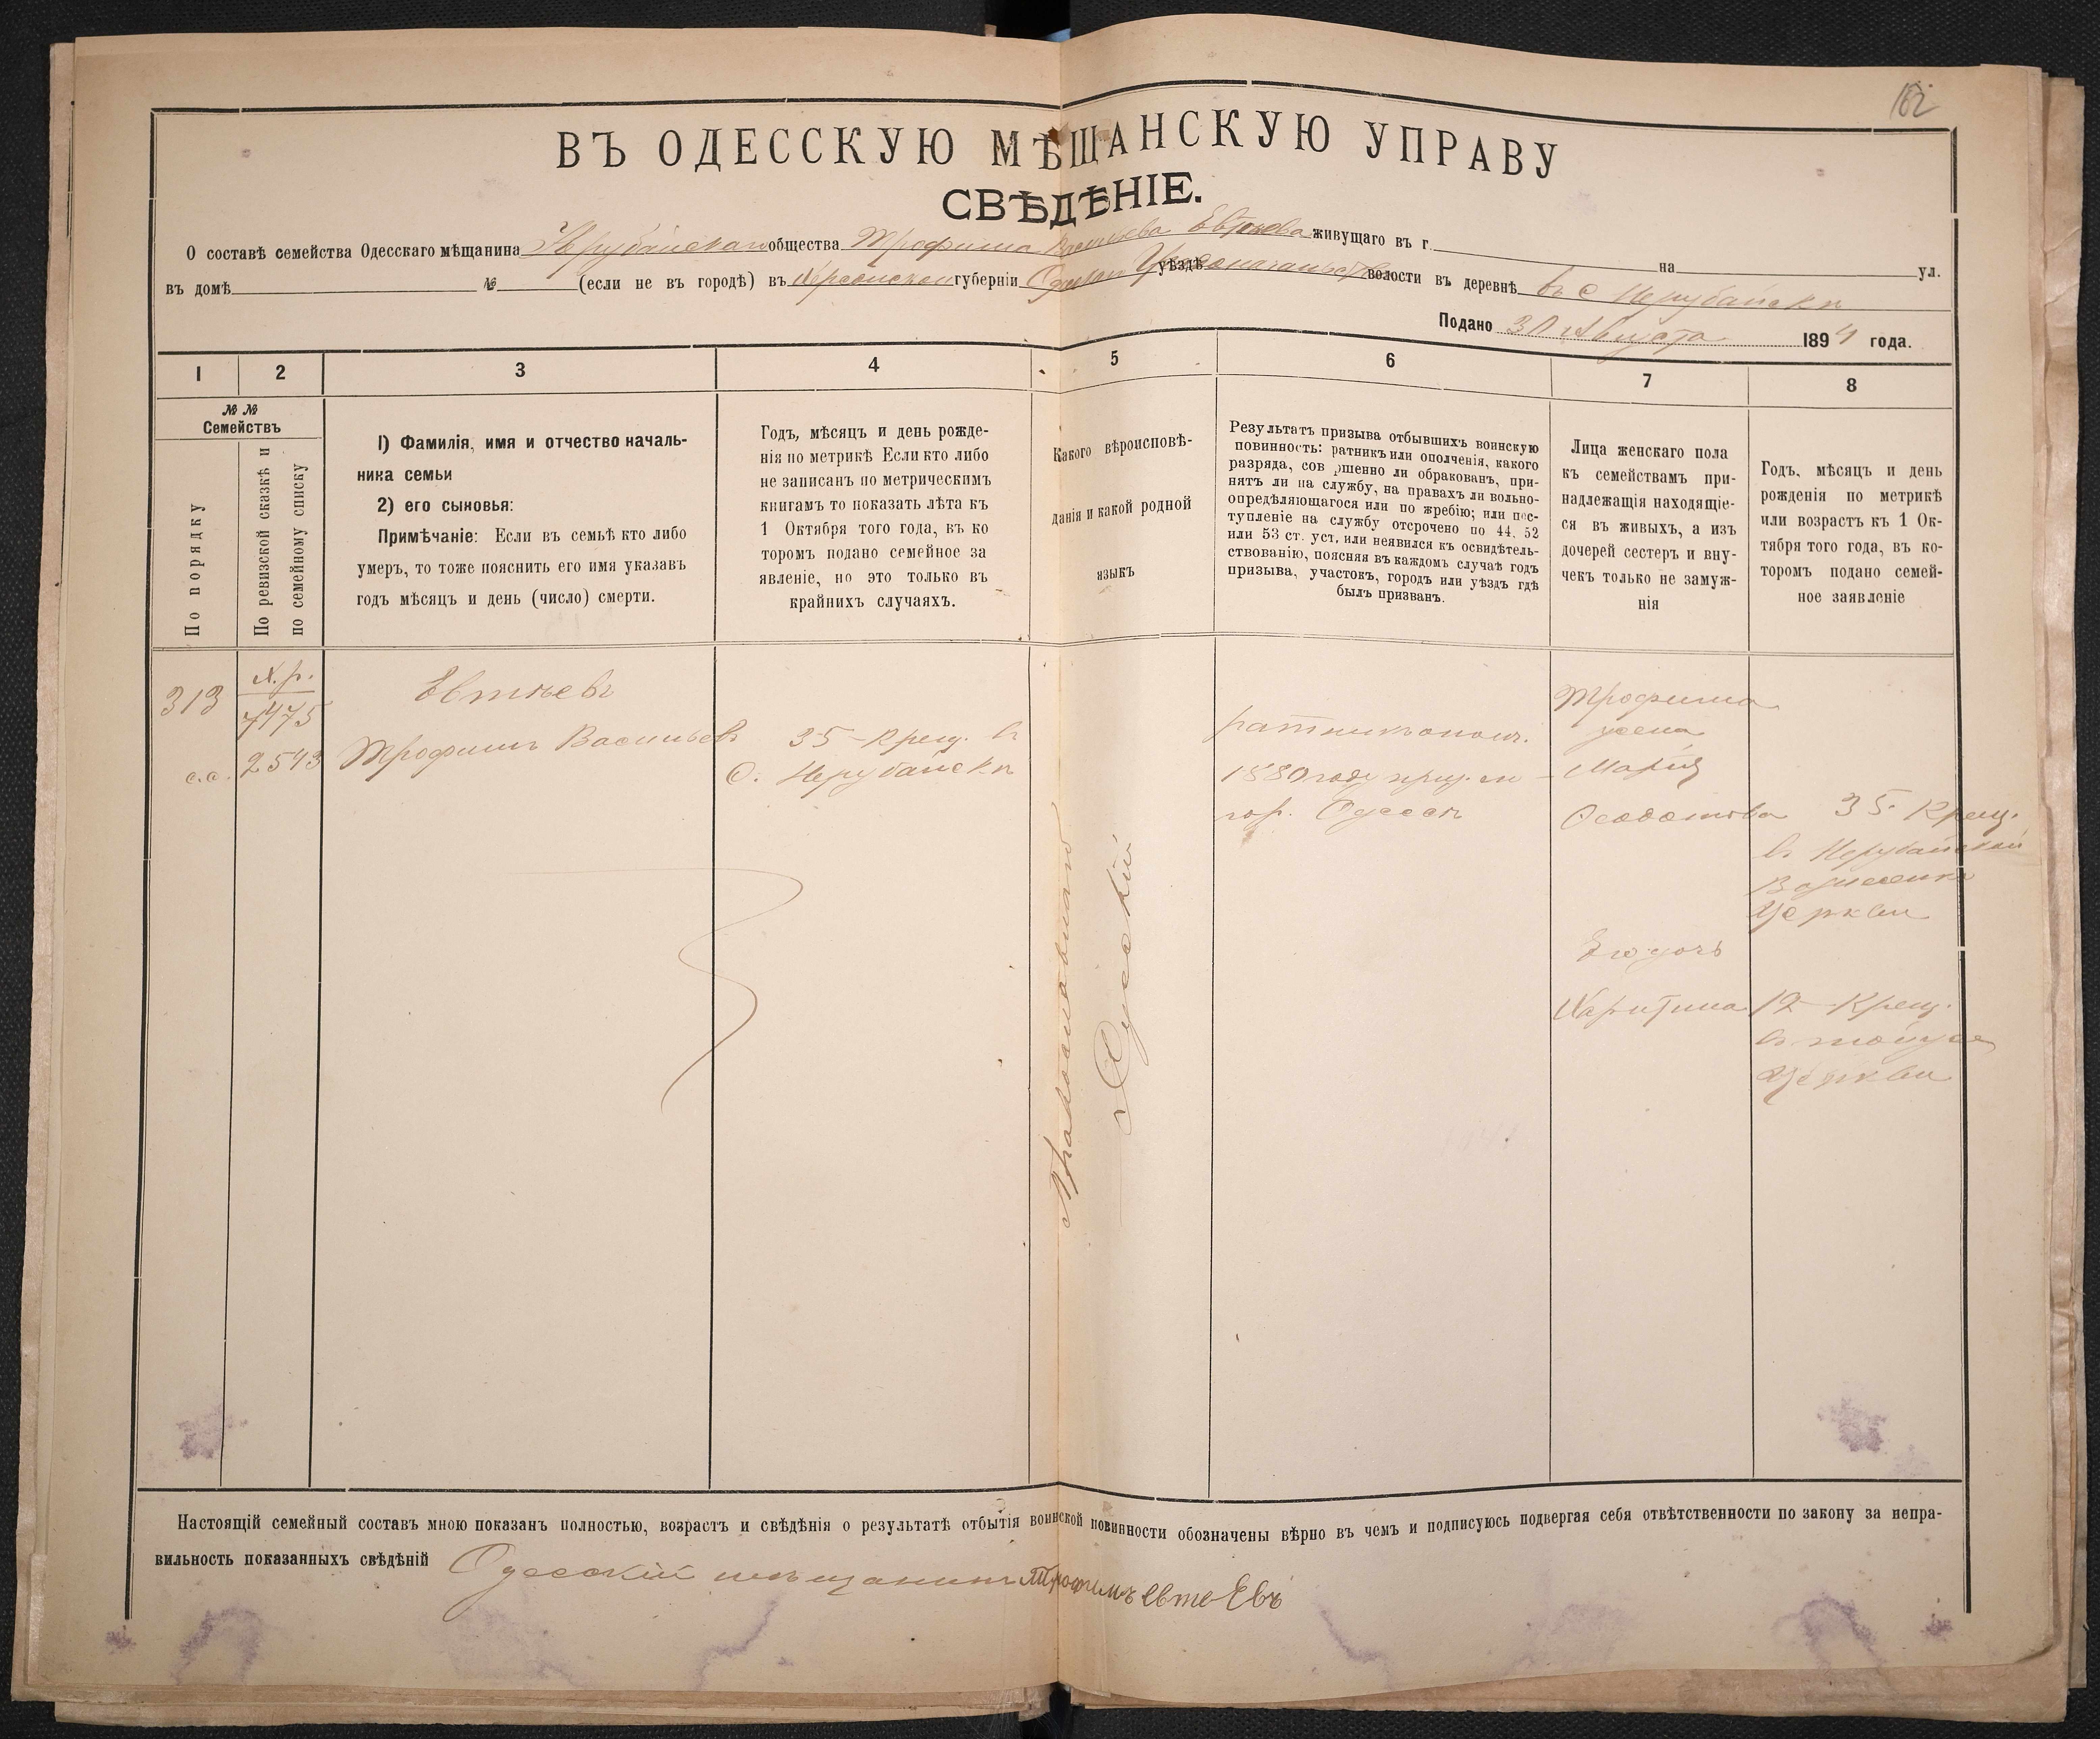 162
ВЪ ОДЕССКУЮ МѢЩАНСКУЮ УПРАВУ
СВѢДѢНІЕ.
О составѣ семейства Одесскаго мѣщанина Нерубайскаго общества Трофима Васильева Евтѣева живущаго въ г. на ул.
въ домѣ № (если не въ городѣ) въ Херсонской губерніи Одескаго уѣздѣ волости въ деревнѣ въ с Нерубайскѣ
Подано 30 Августа 1894 года.
1 2 3 4 5 6 7 8
№ №
Семействъ
По порядку
По ревизской сказкѣ и
по семейному списку
1) Фамилія, имя и отчество началь-
ника семьи
2) его сыновья:
Примѣчаніе: Если въ семьѣ кто либо
умеръ, то тоже пояснить его имя указавъ
годъ мѣсяцъ и день (число) смерти.
Годъ, мѣсяцъ и день рожде-
нія по метрикѣ Если кто либо
не записанъ по метрическимъ
книгамъ то показать лѣта къ
1 Октября того года, въ ко
торомъ подано семейное за
явленіе, но это только въ
крайнихъ случаяхъ.
Какого вѣроисповѣ-
данія и какой родной
языкъ
Результатъ призыва отбывшихъ воинскую
повинность: ратникъ или ополченія, какого
разряда, сов ршенно ли обракованъ, при-
нятъ ли на службу, на правахъ ли вольно-
опредѣляющагося или по жребію; или пос-
тупленіе на службу отсрочено по 44. 52
или 53 ст. уст. или неявился къ освидѣтель-
ствованію, поясняя въ каждомъ случаѣ годъ
призыва, участокъ, городъ или уѣздъ гдѣ
былъ призванъ.
Лица женскаго пола
къ семействамъ при-
надлежащія находящіе-
ся въ живыхъ, а изъ
дочерей сестеръ и вну-
чекъ только не замуж-
нія
Годъ, мѣсяцъ и день
рожденія по метрикѣ
или возрастъ къ 1 Ок-
тября того года, въ ко-
торомъ подано семей-
ное заявленіе
313
с.с.
Н.р.
7475
2543
Евтѣевъ
Трофимъ Васильевъ
35 - Крещ. въ
с. Нерубайскѣ
Православный
Русскій
ратникъ опол.
1880 году
гор. Одессѣ
Трофима
жена
Марія
Феодотова
35 Крещ.
въ Нерубайской
Вознесенск
Церкви
Его дочь
Харитина
12 - Крещ.
въ той же
Церкви
Настоящій семейный составъ мною показанъ полностью, возрастъ и свѣдѣнія о результатѣ отбытія воинской повинности обозначены вѣрно въ чемъ и подписуюсь подвергая себя отвѣтственности по закону за непра-
вильность показанныхъ свѣдѣній Одесскій мѣщанинъ Трофимъ евтеЕвъ